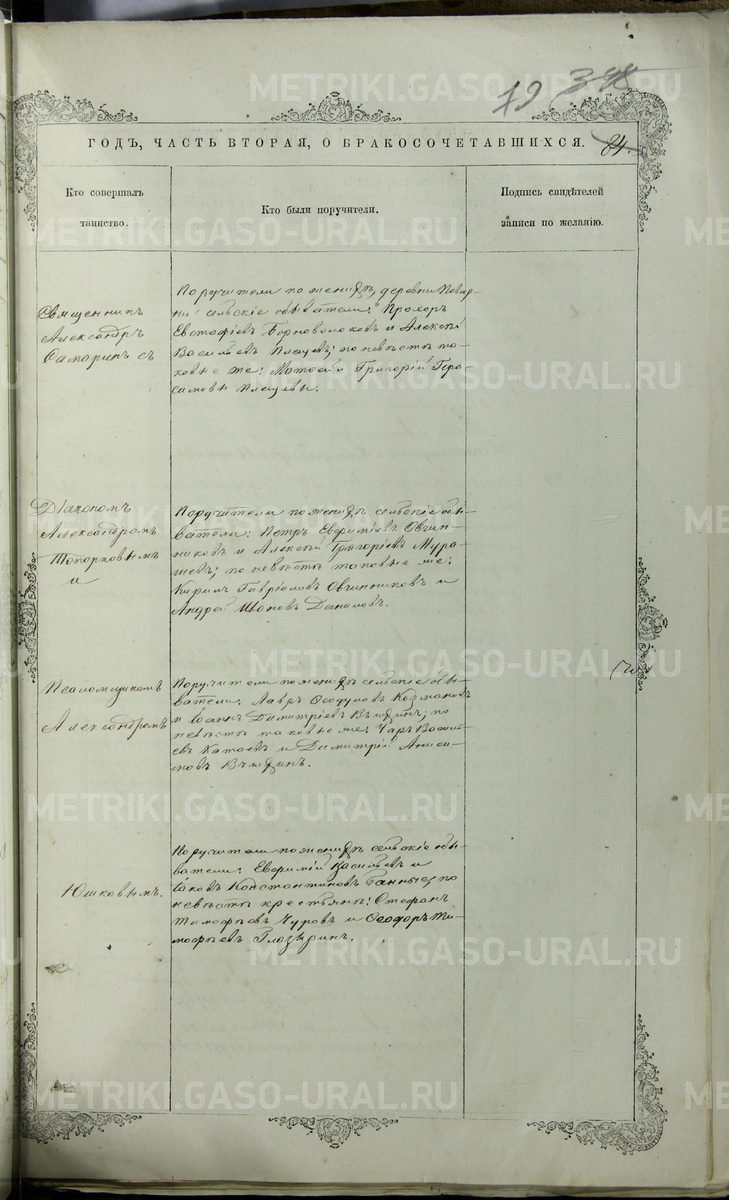 79 348
ГОДЪ, ЧАСТЬ ВТОРАЯ, О БРАКОСОЧЕТАВШИХСЯ. 84.
Кто совершалъ
таинство.
Кто были поручители.
Подпись свидѣтелей
записи по желанію.
Священникъ
Александръ
Самаринъ съ
Поручители по женихѣ, деревни
сельскіе обыватели: Прохоръ
Евстафіевъ Черноволоковъ и Алексѣй
Васильевъ Плещевъ; по невѣстѣ та-
ковые же: Матѳей и Григорій Гера-
симовы Плещевы.
Діакономъ
Александромъ
Топорковымъ
и
Поручители по женихѣ сельскіе обы-
ватели: Петръ Евѳиміевъ Овчин-
никовъ и Алексѣй Григоріевъ Мура-
шевъ; по невѣстѣ таковые же:
Кирилъ Гавріиловъ Овчинниковъ и
Андрей Ивановъ Даниловъ.
Псаломщикомъ
Александромъ
Поручители по женихѣ сельскіе обы-
ватели: Лавръ Ѳеодуловъ
и Іоаннъ Димитріевъ по
невѣстѣ таковые же: Василь-
евъ Катаевъ и Димитрій Аниси-
мовъ
Юшковымъ.
Поручители по женихѣ сельскіе обы-
ватели: Евѳимій Васильевъ и
Іаковъ Константиновъ по
невѣстѣ крестьяне: Стефанъ
Тимофѣевъ Чуровъ и Ѳеодоръ Ти-
мофѣевъ Глазыринъ.
METRIKI.GASO-URAL.RU